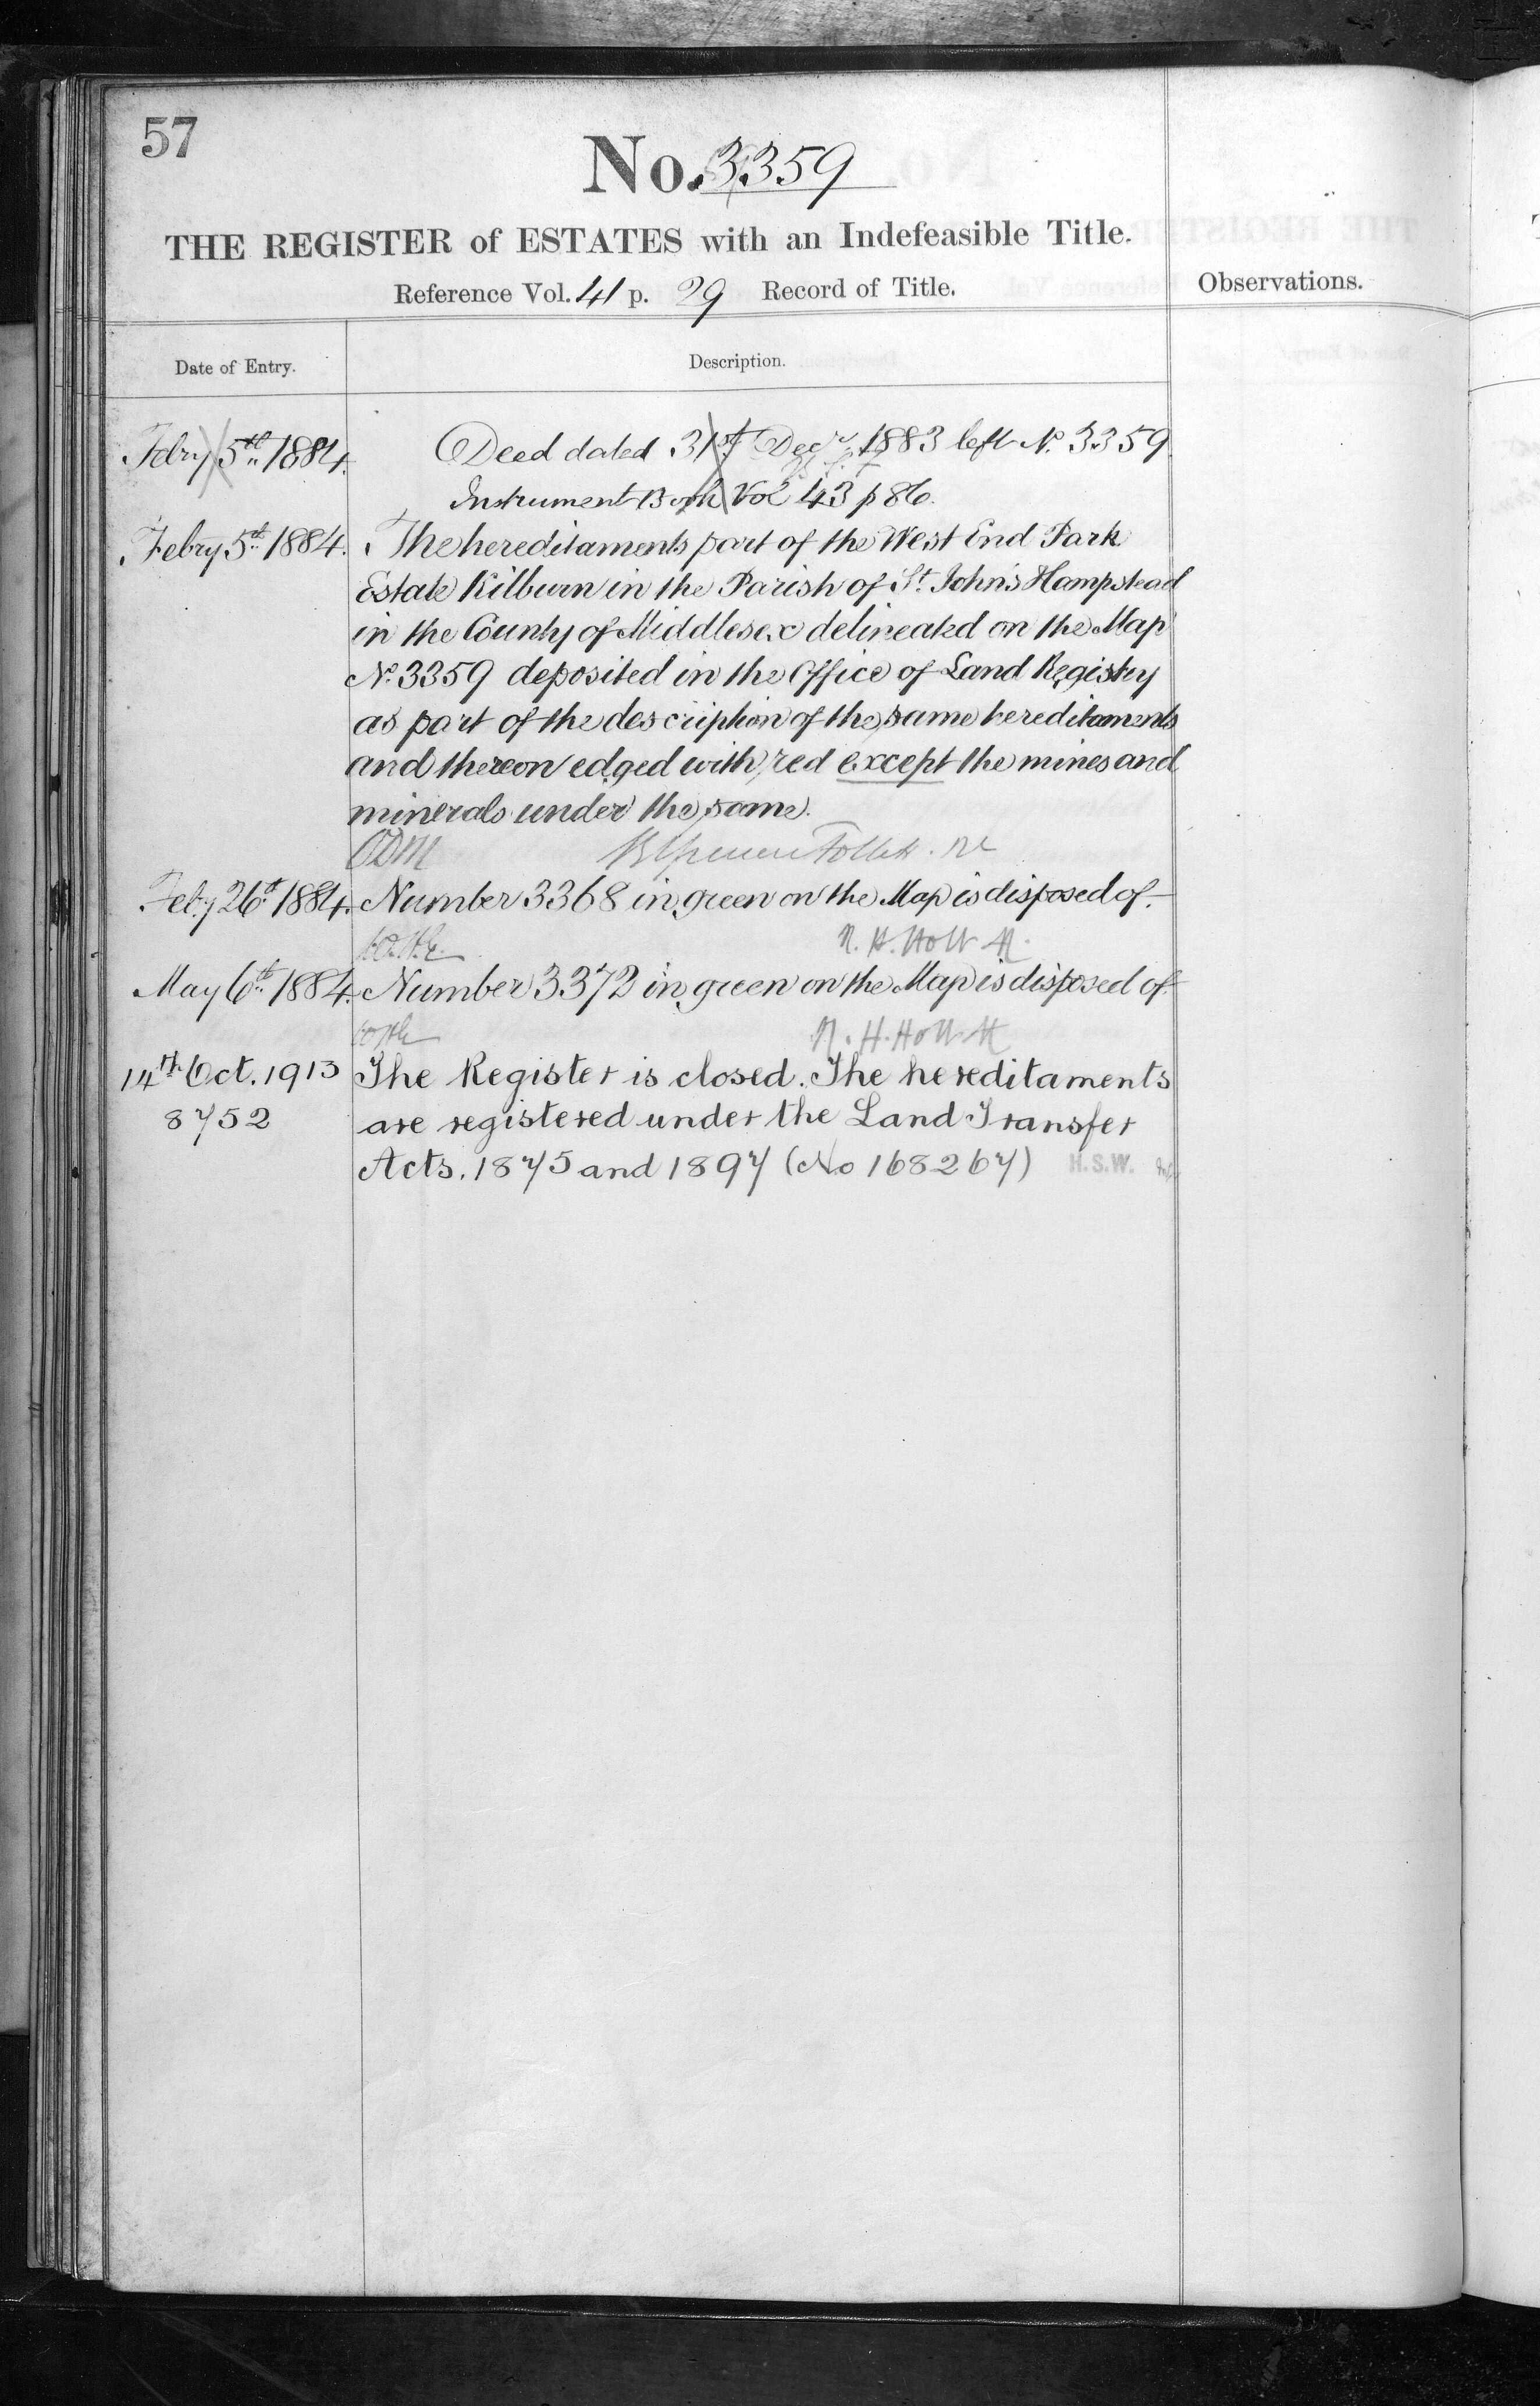 57
No. 3359
THE REGISTER of ESTATES with an Indefeasible Title.
Reference Vol. 41 p. 29 Record of Title.
Observations.
Date of Entry.
Description.
Febry 5th 1884. Deed dated 31st Decr 1883 left No. 3359
Instrument Book Vol 43 p 86.
Febry 5th 1884. The hereditaments part of the West End Park
Estate Kilburn in the Parish of St. John's Hampstead
in the County of Middlesex delineated on the Map
No. 3359 deposited in the Office of Land Registry
as part of the description of the same hereditaments
and thereon edged with red except the mines and
minerals under the same.
ODM
Feby 26th 1884. Number 3368 in green on the Map is disposed of.
R. H. Holt
May 6th 1884. Number 3372 in green on the Map is disposed of.
R. H. Holt
14th Oct. 1913 The Register is closed. The hereditaments
8752 are registered under the Land Transfer
Acts. 1875 and 1897 (No 168267) H.S.W.